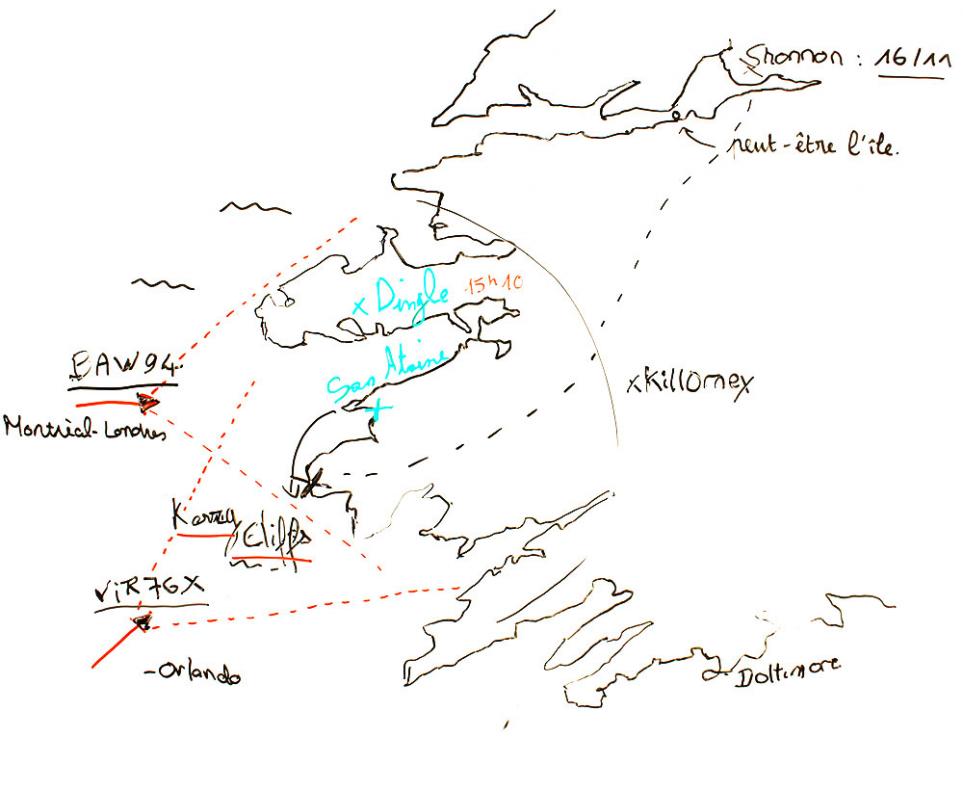 Shannon : 16/11
peut-être l'île.
x Dingle 15h10
BAW94
Montréal-Londres
San Ataine
x Killorney
Kerry
Cliffs
ViR76X
-Orlando
Baltimore